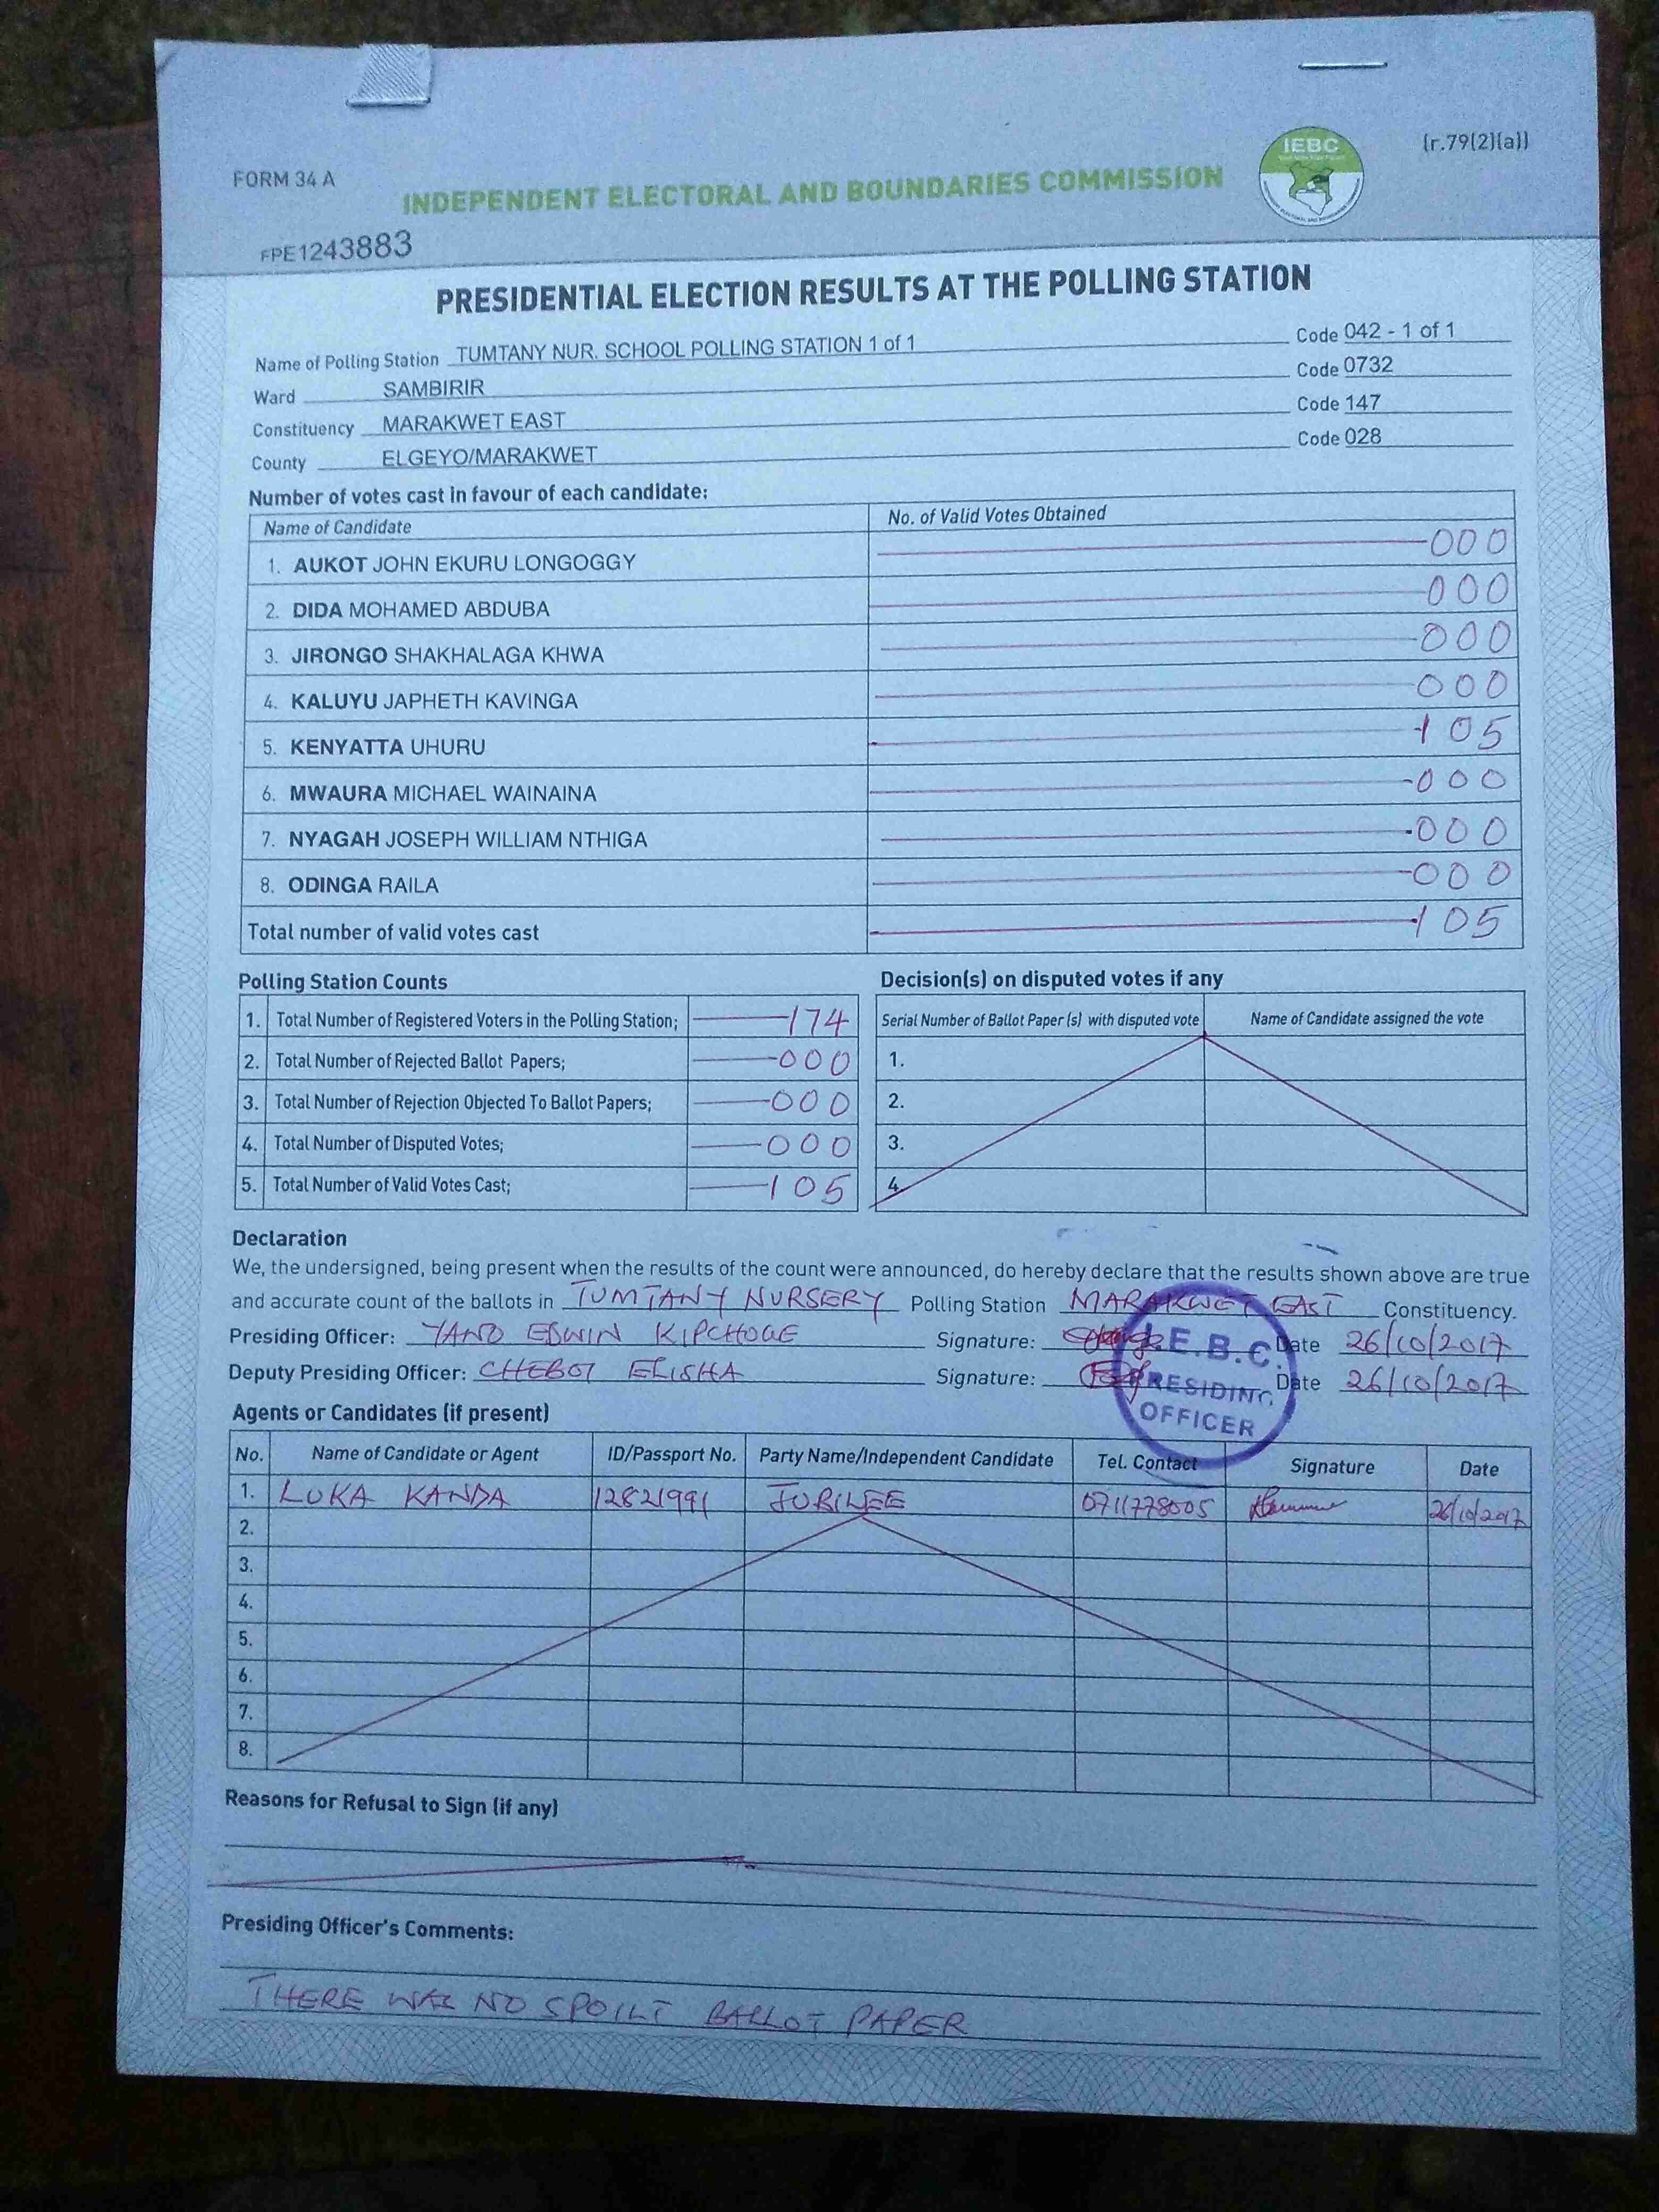 FORM 34 A
INDEPENDENT ELECTORAL AND BOUNDARIES COMMISSION
IEBC
(r.79(2)(a))
FPE1243883
PRESIDENTIAL ELECTION RESULTS AT THE POLLING STATION
Name of Polling Station TUMTANY NUR. SCHOOL POLLING STATION 1 of 1 Code 042 - 1 of 1
Ward SAMBIRIR Code 0732
Constituency MARAKWET EAST Code 147
County ELGEYO/MARAKWET Code 028
Number of votes cast in favour of each candidate:
Name of Candidate No. of Valid Votes Obtained
1. AUKOT JOHN EKURU LONGOGGY 000
2. DIDA MOHAMED ABDUBA 000
3. JIRONGO SHAKHALAGA KHWA 000
4. KALUYU JAPHETH KAVINGA 000
5. KENYATTA UHURU 105
6. MWAURA MICHAEL WAINAINA 000
7. NYAGAH JOSEPH WILLIAM NTHIGA 000
8. ODINGA RAILA 000
Total number of valid votes cast 105
Polling Station Counts
1. Total Number of Registered Voters in the Polling Station; 174
2. Total Number of Rejected Ballot Papers; 000
3. Total Number of Rejection Objected To Ballot Papers; 000
4. Total Number of Disputed Votes; 000
5. Total Number of Valid Votes Cast; 105
Decision(s) on disputed votes if any
Serial Number of Ballot Paper (s) with disputed vote Name of Candidate assigned the vote
1.
2.
3.
4.
Declaration
We, the undersigned, being present when the results of the count were announced, do hereby declare that the results shown above are true
and accurate count of the ballots in TUMTANY NURSERY Polling Station MARAKWET EAST Constituency.
Presiding Officer: YANO EDWIN KIPCHOGE Signature: Date 26/10/2017
Deputy Presiding Officer: CHEBOI ELISHA Signature: Date 26/10/2017
I.E.B.C.
PRESIDING
OFFICER
Agents or Candidates (if present)
No. Name of Candidate or Agent ID/Passport No. Party Name/Independent Candidate Tel. Contact Signature Date
1. LUKA KANDA 12821991 JUBILEE 0711778005 26/10/2017
2.
3.
4.
5.
6.
7.
8.
Reasons for Refusal to Sign (if any)
Presiding Officer's Comments:
THERE WAS NO SPOILT BALLOT PAPER